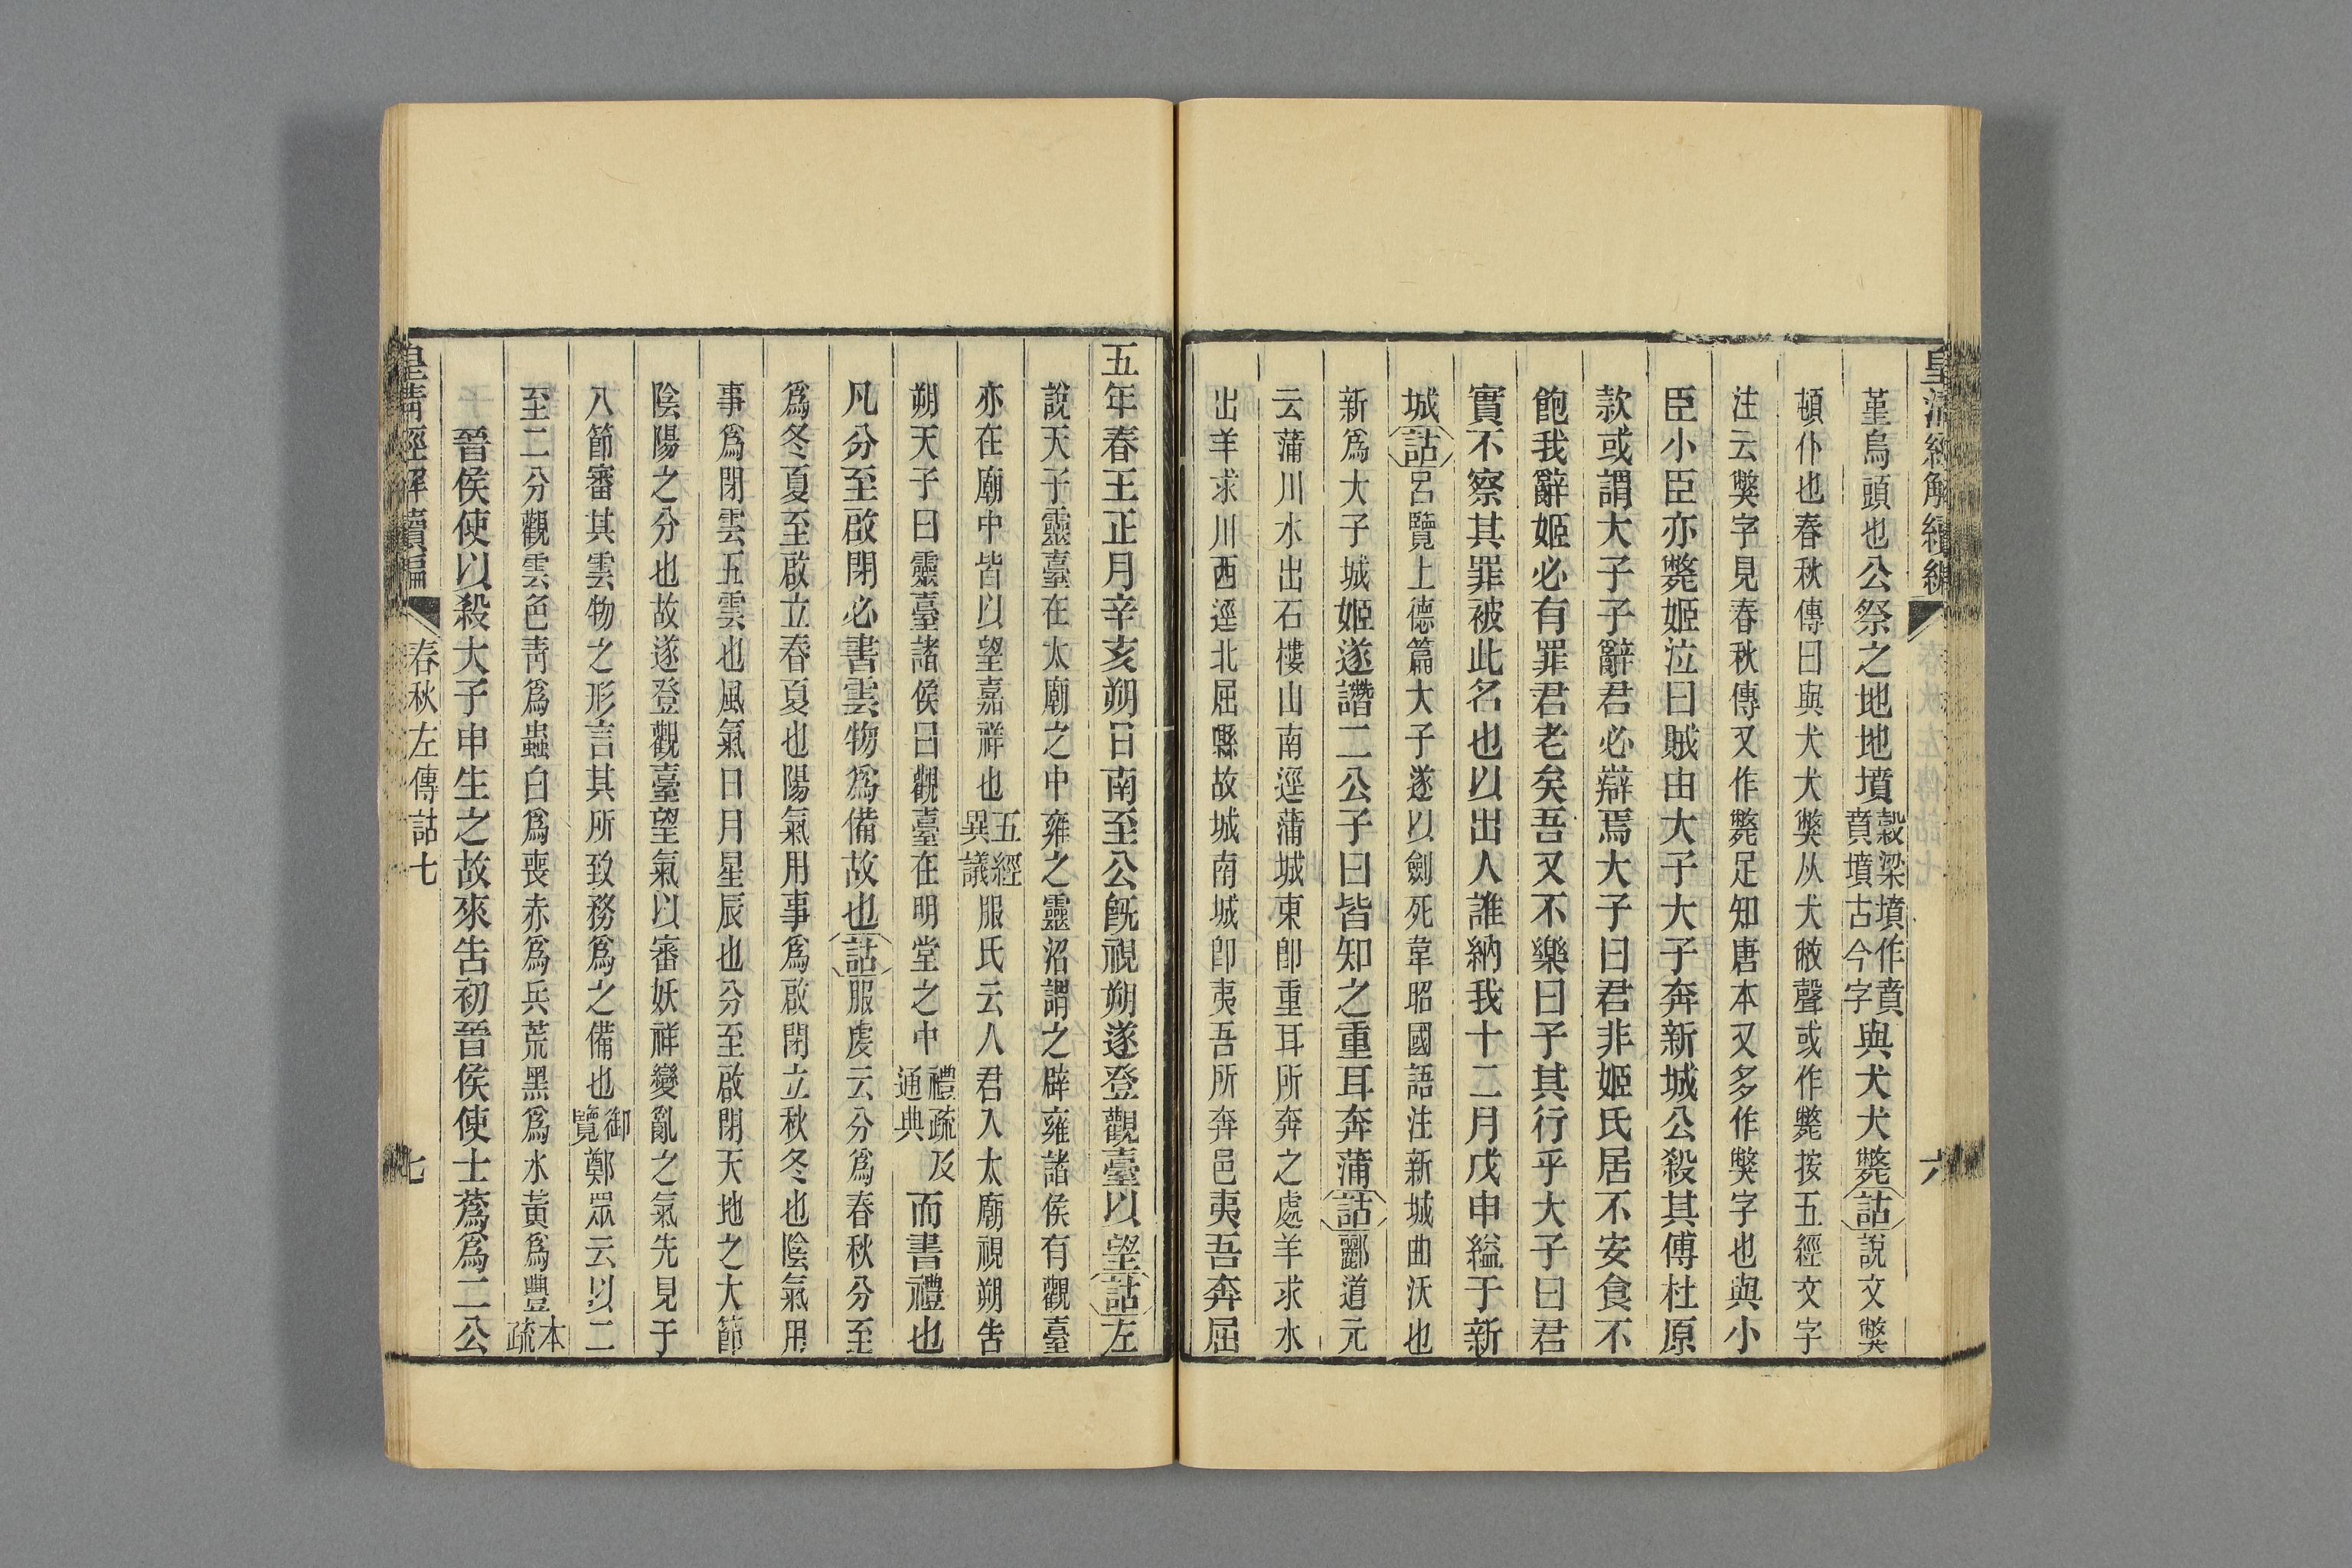 皇清經解續編
六
堇烏頭也公祭之地地墳穀梁墳作賁賁墳古今字與犬犬斃詁說文獘
頓仆也春秋傳曰與犬犬獘从犬敝聲或作斃按五經文字
注云獘字見春秋傳又作斃足知唐本又多作獘字也與小
臣小臣亦斃姬泣曰賊由大子大子奔新城公殺其傅杜原
款或謂大子子辭君必辯焉大子曰君非姬氏居不安食不
飽我辭姬必有罪君老矣吾又不樂曰子其行乎大子曰君
實不察其罪被此名也以出人誰納我十二月戊申縊于新
城詁呂覽上德篇大子遂以劍死韋昭國語注新城曲沃也
新爲大子城姬遂譖二公子曰皆知之重耳奔蒲詁酈道元
云蒲川水出石樓山南逕蒲城東卽重耳所奔之處羊求水
出羊求川西逕北屈縣故城南城卽夷吾所奔邑夷吾奔屈
五年春王正月辛亥朔日南至公旣視朔遂登觀臺以望詁左
說天子靈臺在太廟之中雍之靈沼謂之辟雍諸侯有觀臺
亦在廟中皆以望嘉祥也五經異議服氏云人君入太廟視朔告
朔天子曰靈臺諸侯曰觀臺在明堂之中禮疏及通典而書禮也
凡分至啟閉必書雲物爲備故也詁服虔云分爲春秋分至
爲冬夏至啟立春夏也陽氣用事爲啟閉立秋冬也陰氣用
事爲閉雲五雲也風氣日月星辰也分至啟閉天地之大節
陰陽之分也故遂登觀臺望氣以審妖祥變亂之氣先見于
八節審其雲物之形言其所致務爲之備也御覽鄭眾云以二
至二分觀雲色靑爲蟲白爲喪赤爲兵荒黑爲水黃爲豐本疏
晉侯使以殺大子申生之故來告初晉侯使士蒍爲二公
皇清經解續編
春秋左傳詁七
七